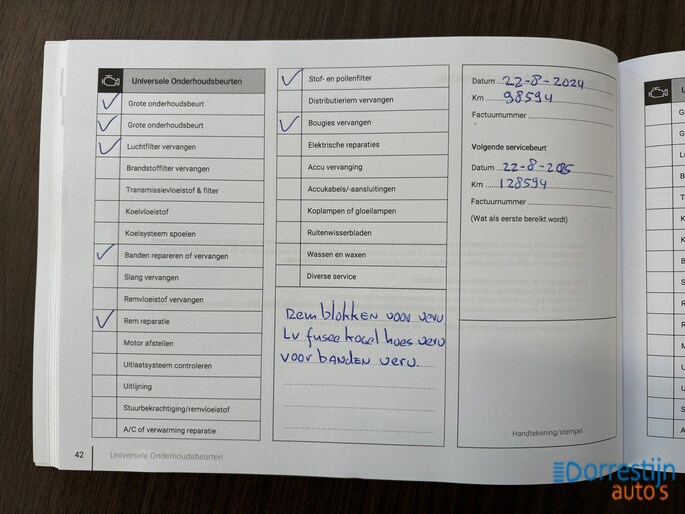 Universele Onderhoudsbeurten
Grote onderhoudsbeurt
Grote onderhoudsbeurt
Luchtfilter vervangen
Brandstoffilter vervangen
Transmissievloeistof & filter
Koelvloeistof
Koelsysteem spoelen
Banden repareren of vervangen
Slang vervangen
Remvloeistof vervangen
Rem reparatie
Motor afstellen
Uitlaatsysteem controleren
Uitlijning
Stuurbekrachtiging/remvloeistof
A/C of verwarming reparatie
Stof- en pollenfilter
Distributieriem vervangen
Bougies vervangen
Elektrische reparaties
Accu vervanging
Accukabels/-aansluitingen
Koplampen of gloeilampen
Ruitenwisserbladen
Wassen en waxen
Diverse service
Remblokken voor verv
LV fusee kogel hoes verv
voor banden verv.
Datum 22-8-2024
Km 98594
Factuurnummer
Volgende servicebeurt
Datum 22-8-2025
Km 128594
Factuurnummer
(Wat als eerste bereikt wordt)
Handtekening/stempel
42 Universele Onderhoudsbeurten
Dorrestijn
auto's